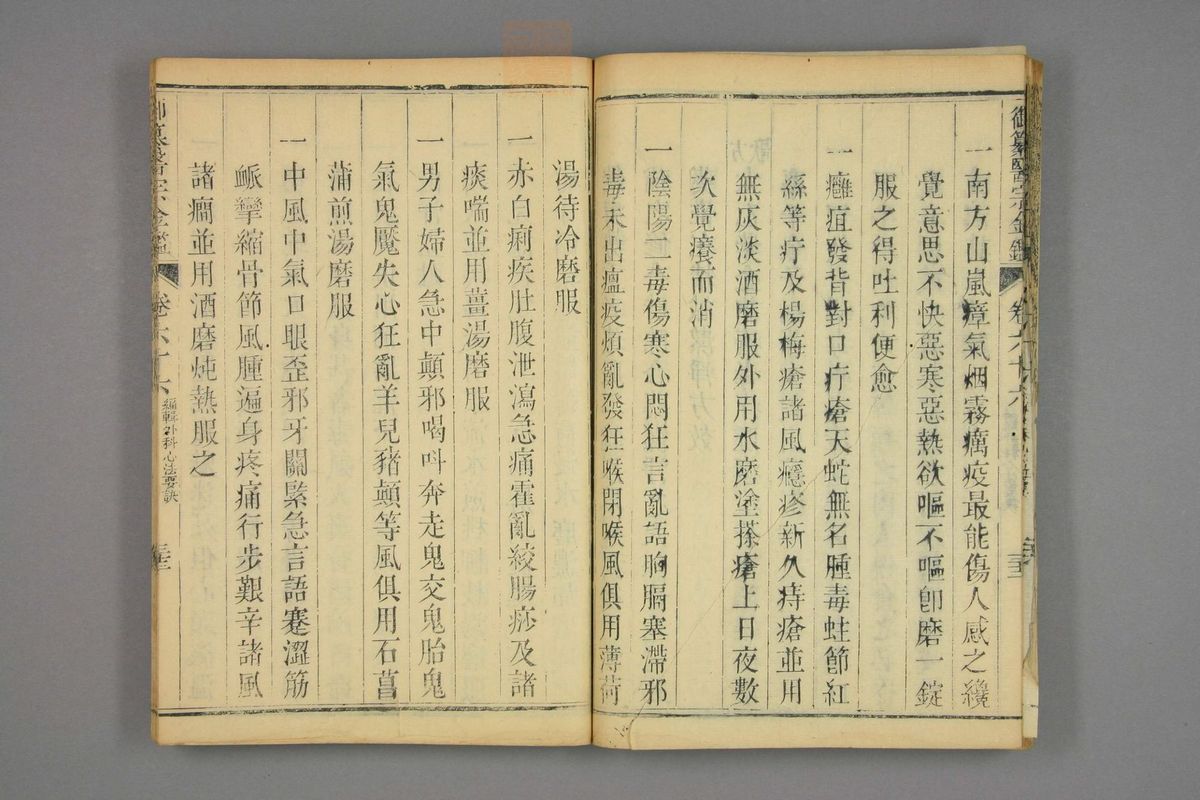 御纂醫宗金鑑
卷六十六
一南方山嵐瘴氣烟霧癘疫最能傷人感之纔
覺意思不快惡寒惡熱欲嘔不嘔卽磨一錠
服之得吐利便愈
一癰疽發背對口疔瘡天蛇無名腫毒蛀節紅
絲等疔及楊梅瘡諸風癮疹新久痔瘡並用
無灰淡酒磨服外用水磨塗搽瘡上日夜數
次覺癢而消
一陰陽二毒傷寒心悶狂言亂語胸膈塞滯邪
毒未出瘟疫煩亂發狂喉閉喉風俱用薄荷
湯待冷磨服
一赤白痢疾肚腹泄瀉急痛霍亂絞腸痧及諸
痰喘並用薑湯磨服
一男子婦人急中顛邪喝呌奔走鬼交鬼胎鬼
氣鬼魘失心狂亂羊兒豬顛等風俱用石菖
蒲煎湯磨服
一中風中氣口眼歪邪牙關緊急言語蹇澀筋
脈攣縮骨節風腫遍身疼痛行步艱辛諸風
諸癎並用酒磨炖熱服之
御纂醫宗金鑑
卷六十六
編輯外科心法要訣